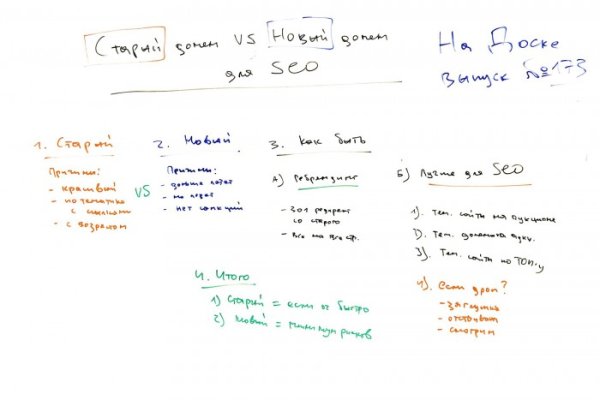 Старый домен VS Новый домен
для SEO
На Доске
выпуск №173
1. Старый
Причины:
- красивый
- по тематике
с ссылками
- с возрастом
VS
2. Новый
Причины:
- дольше
- нет санкций
3. Как быть
А) Ребрендинг
- 301 редирект
со старого
- Все на все стр.
Б) Лучше для SEO
1). Тем. сайты на аукционе
2). Тем. домена аукц.
3). Тем. сайты по ТОП-у
4). если дроп?
- заглушка
- отстаивать
- смотрим
4. Итого
1) Старый = если ог быстро
2) Новый = минимум рисков